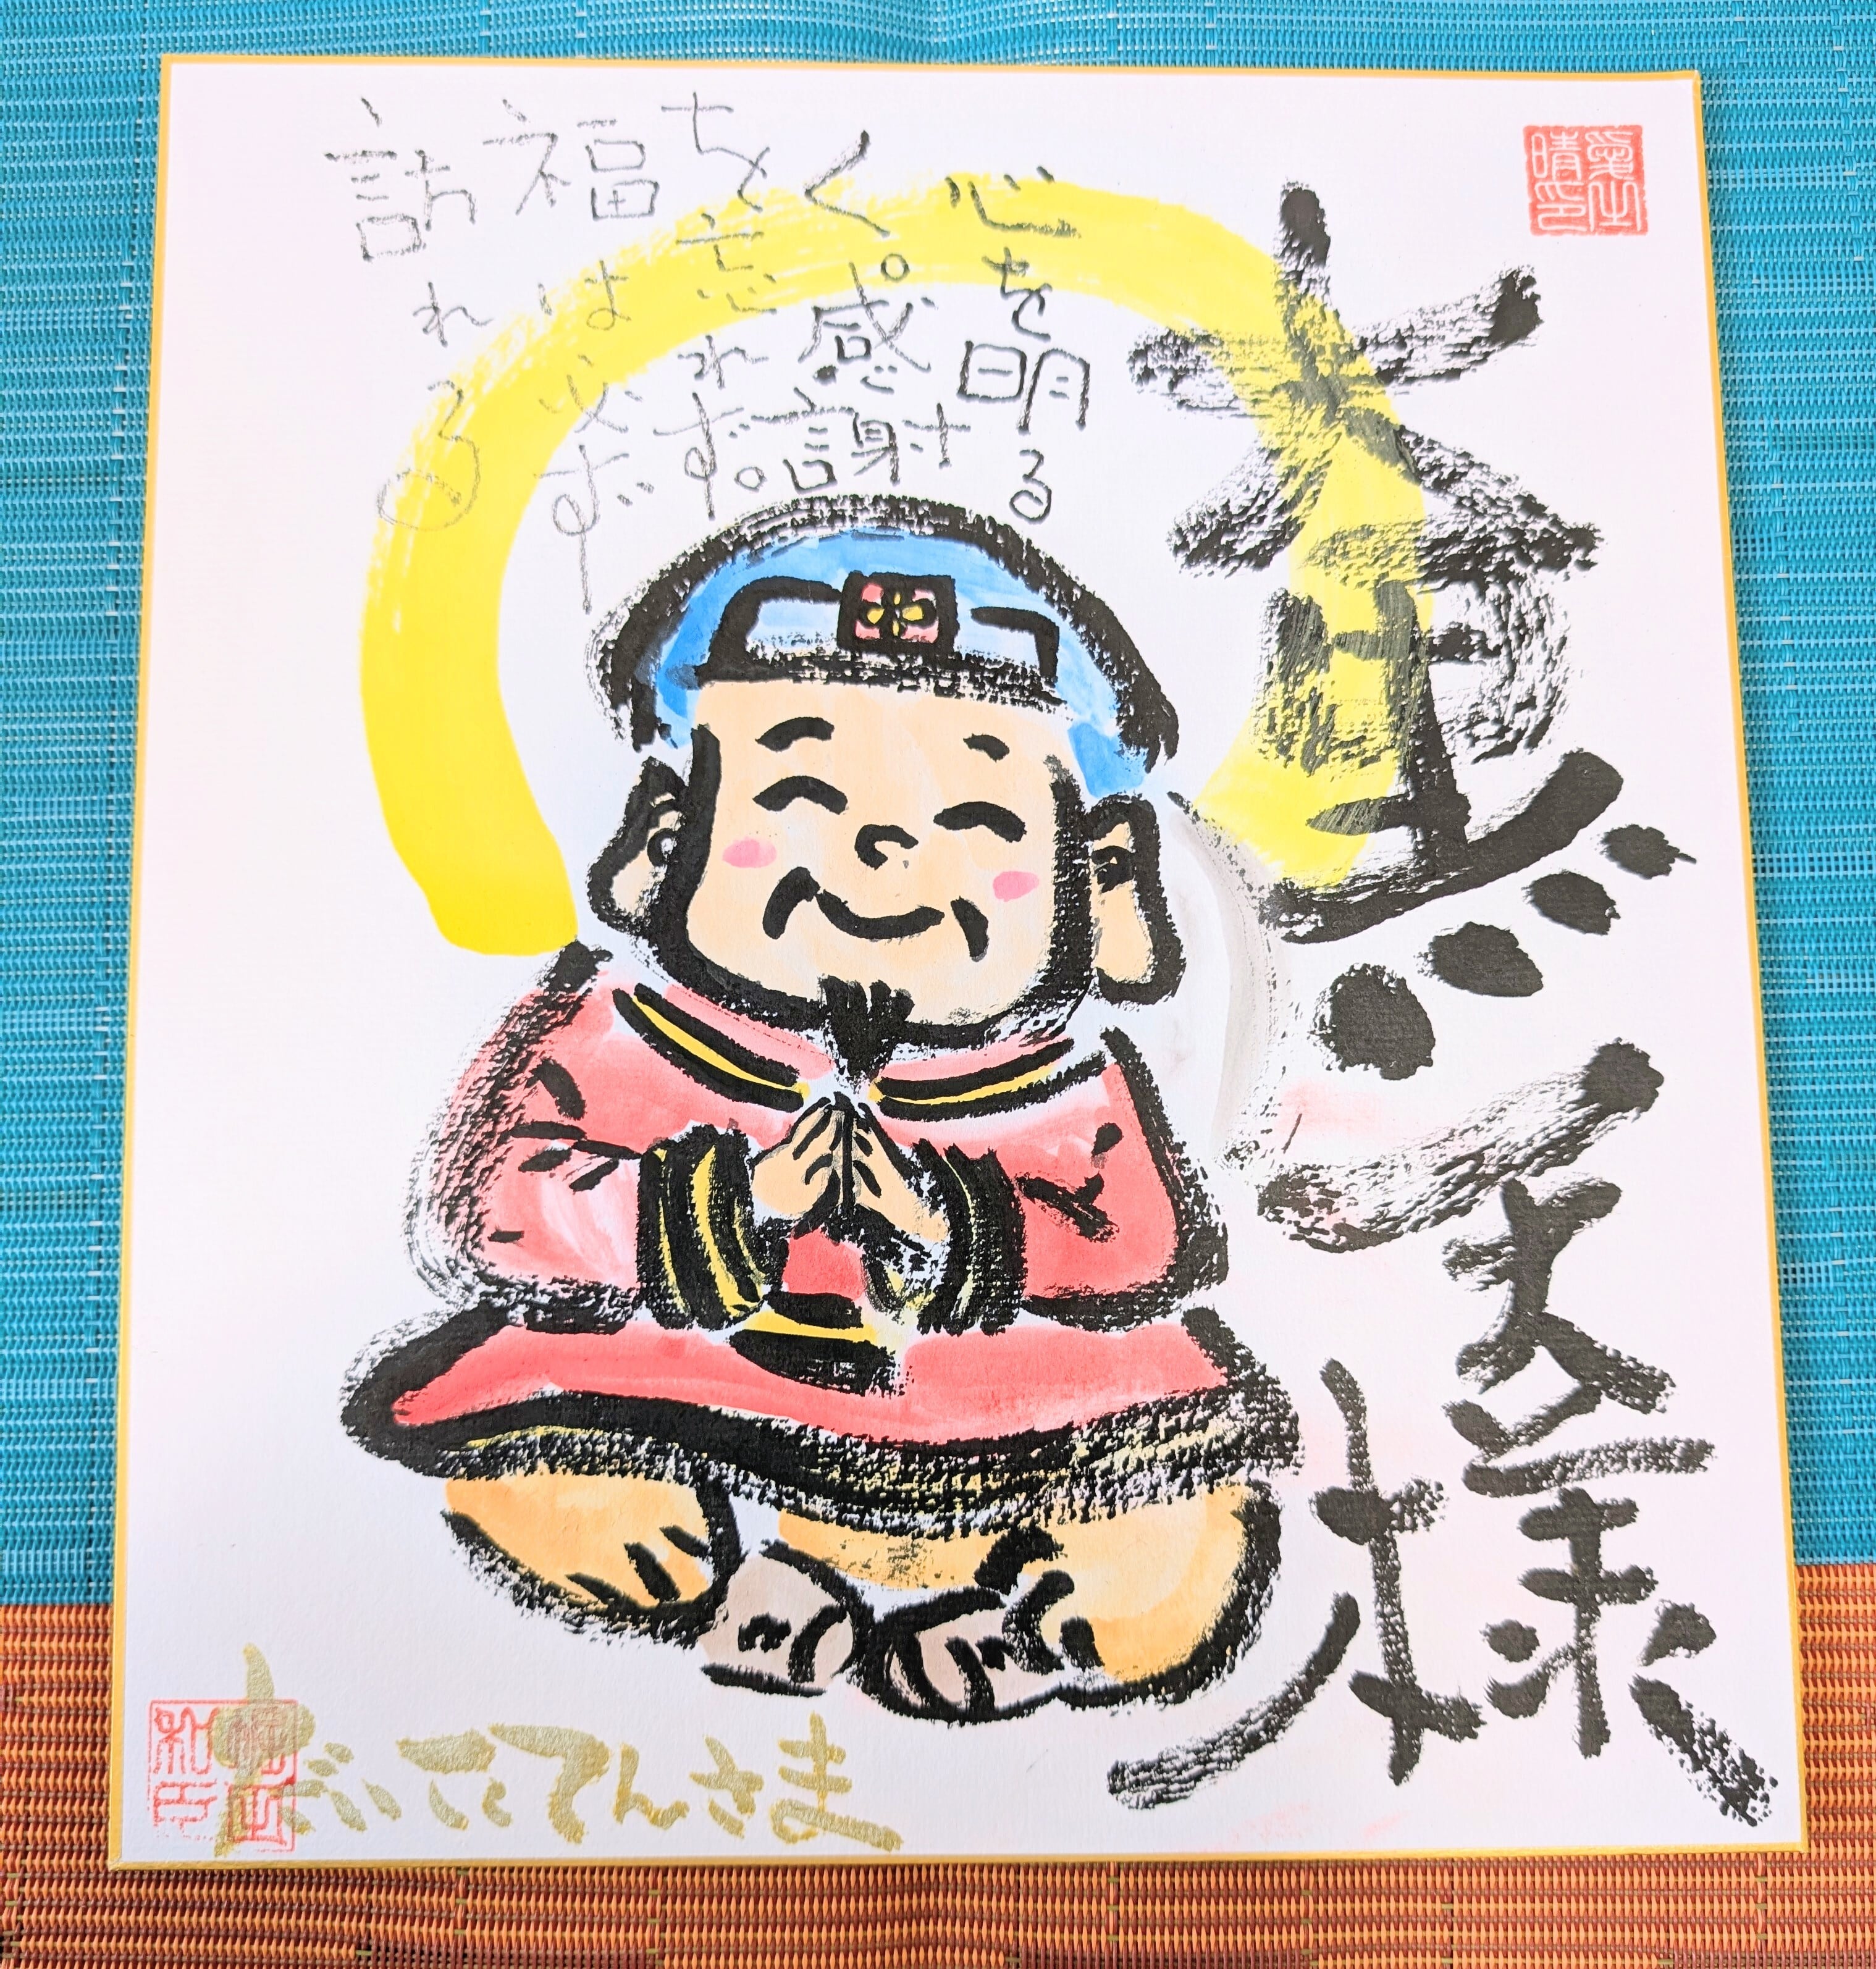 大黒天様
心を明る
く。感謝
を忘れず。
福は必ず
訪れる
だいこくてんさま